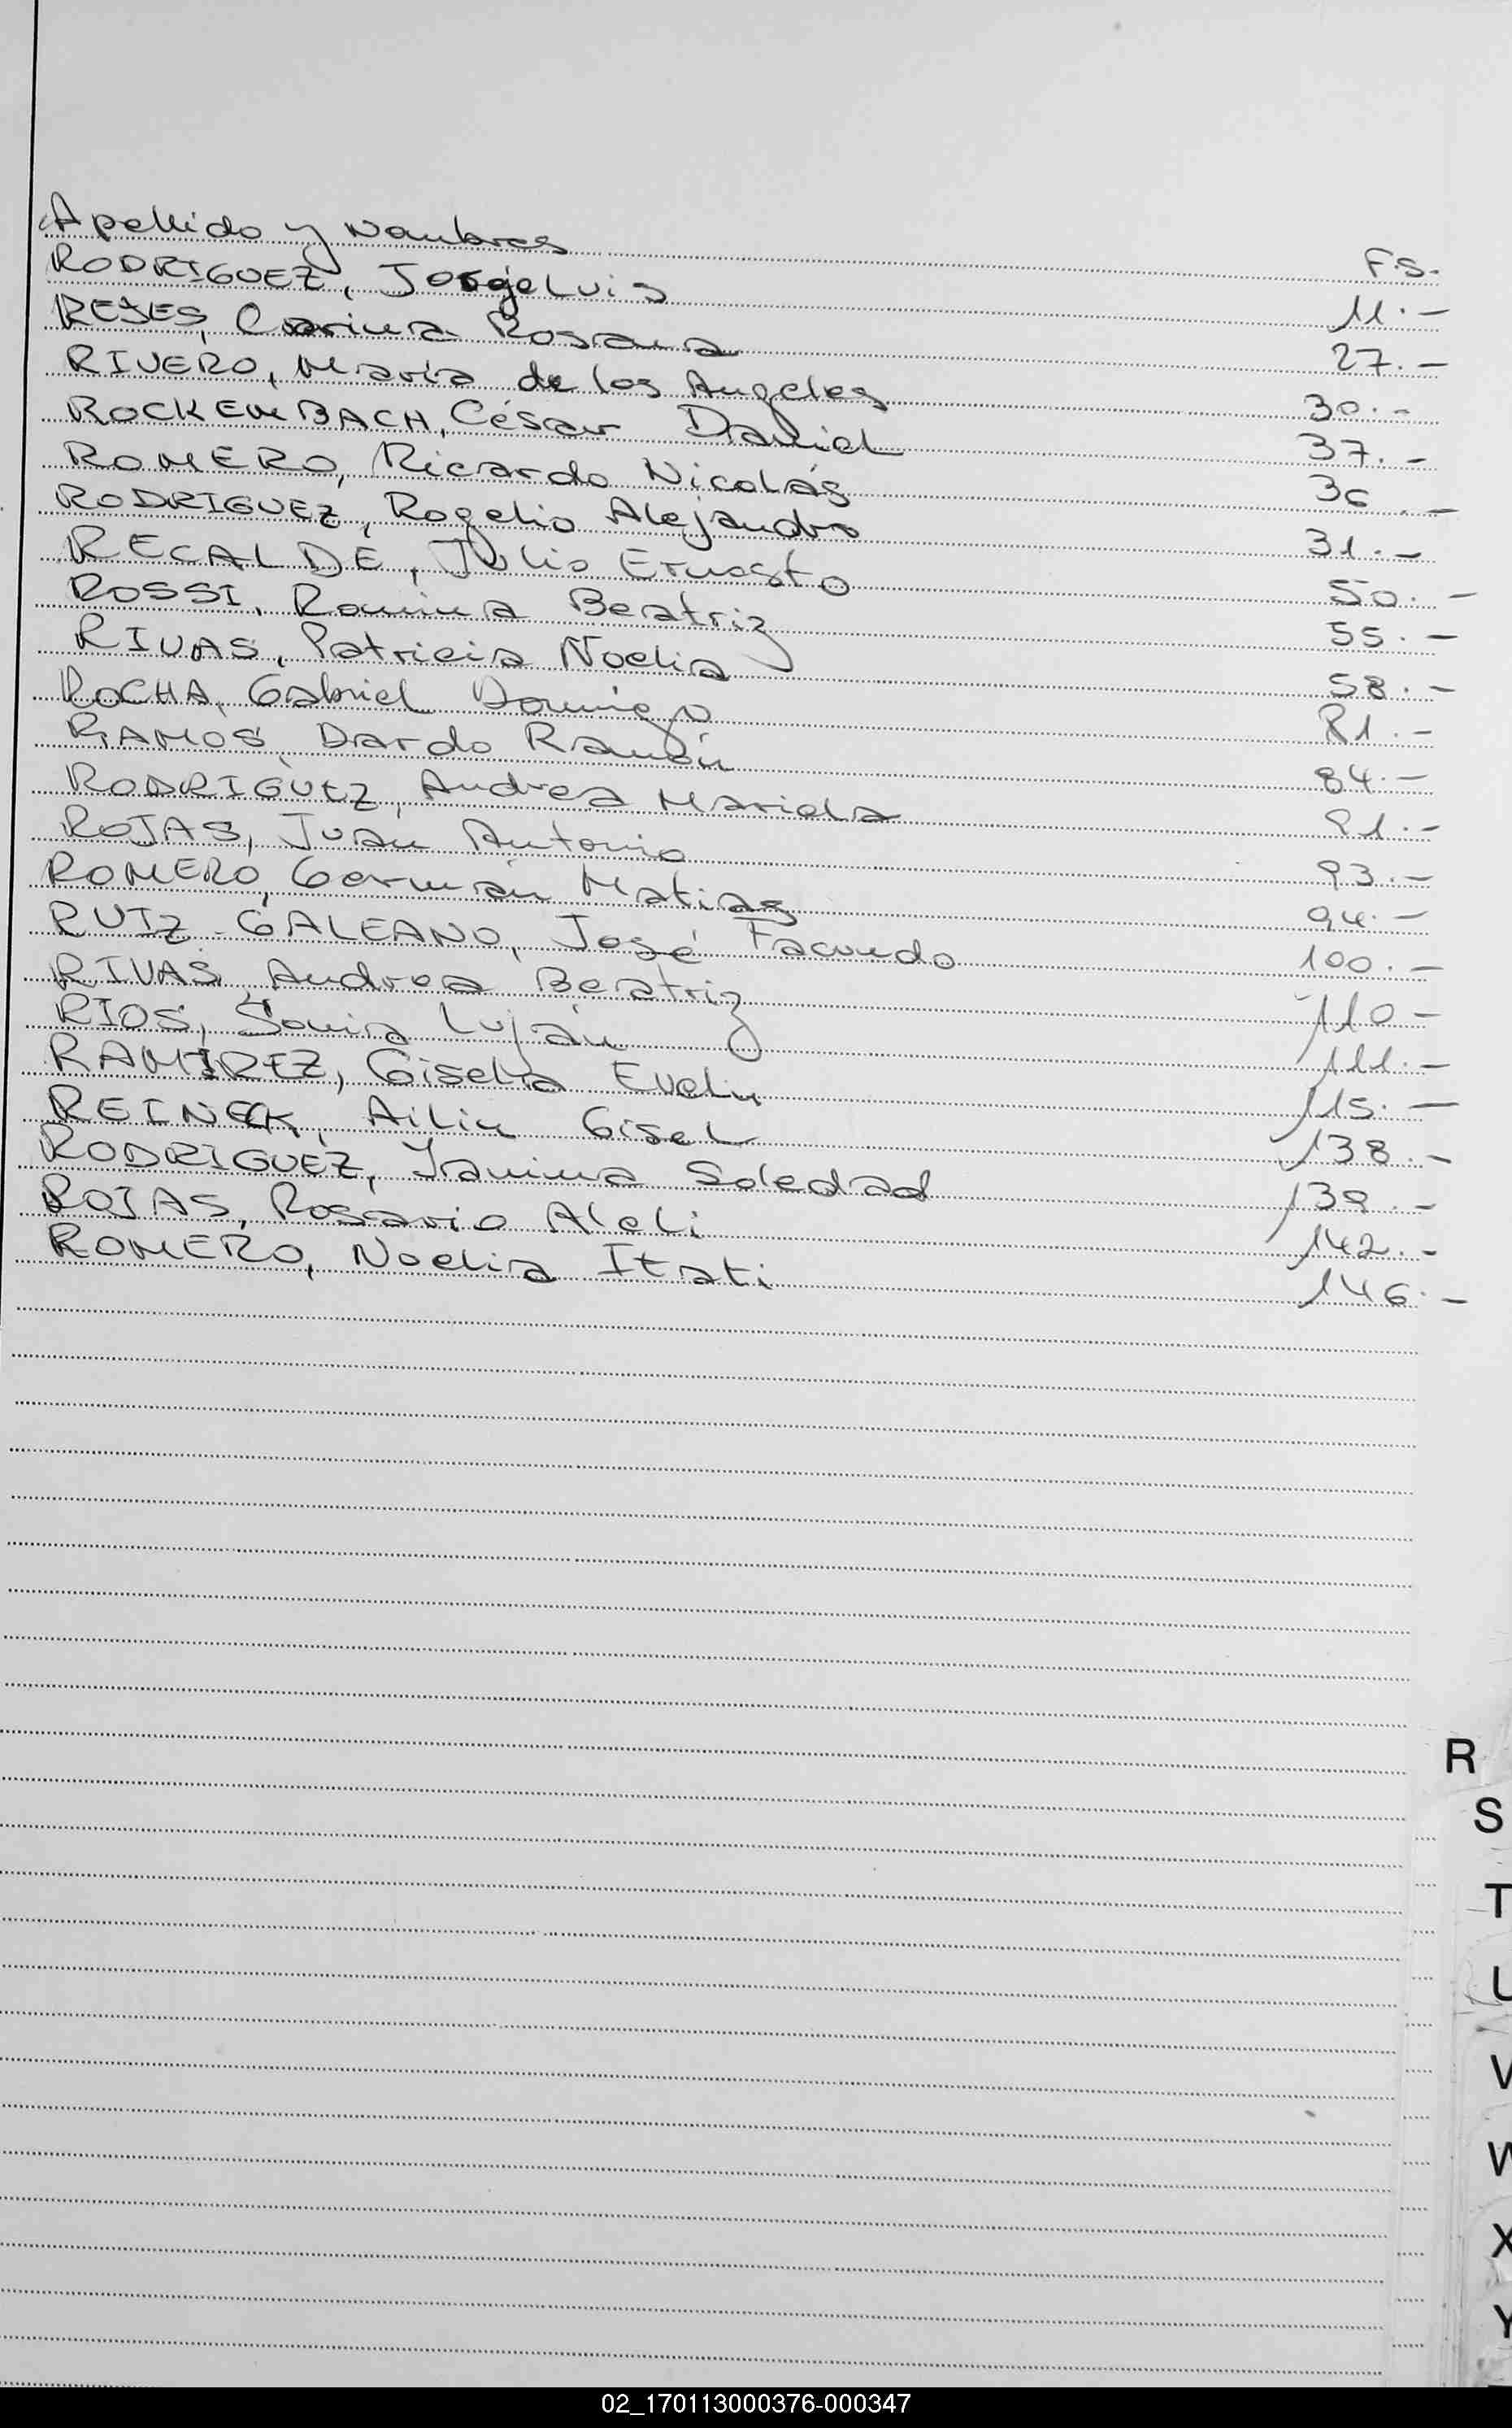 Apellido y Nombres F.S.
RODRIGUEZ, Jorge Luis 11.-
REYES, Carina Rosana 27.-
RIVERO, María de los Angeles 30.-
ROCKEMBACH, César Daniel 37.-
ROMERO, Ricardo Nicolás 36.-
RODRIGUEZ, Rogelio Alejandro 31.-
RECALDE, Julio Ernesto 50.-
ROSSI, Romina Beatriz 55.-
RIVAS, Patricia Noelia 58.-
ROCHA, Gabriel Domingo 81.-
RAMOS, Dardo Ramón 84.-
RODRIGUEZ, Andrea Mariela 91.-
ROJAS, Juan Antonio 93.-
ROMERO, Germán Matias 94.-
RUIZ GALEANO, José Facundo 100.-
RIVAS, Andrea Beatriz 110-
RIOS, Sonia Luján 111.-
RAMIREZ, Gisela Evelin 115.-
REINECK, Ailin Gisel 138.-
RODRIGUEZ, Yanina Soledad 139.-
ROJAS, Rosario Aleli 142.-
ROMERO, Noelia Itati 146.-
R
S
T
U
V
W
X
Y
02_170113000376-000347